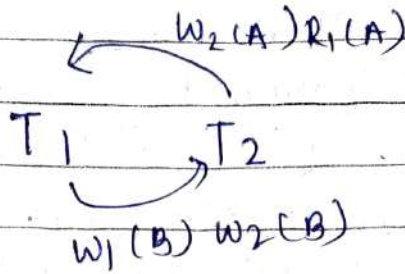 W2(A) R1(A)
T1 T2
W1(B) W2(B)